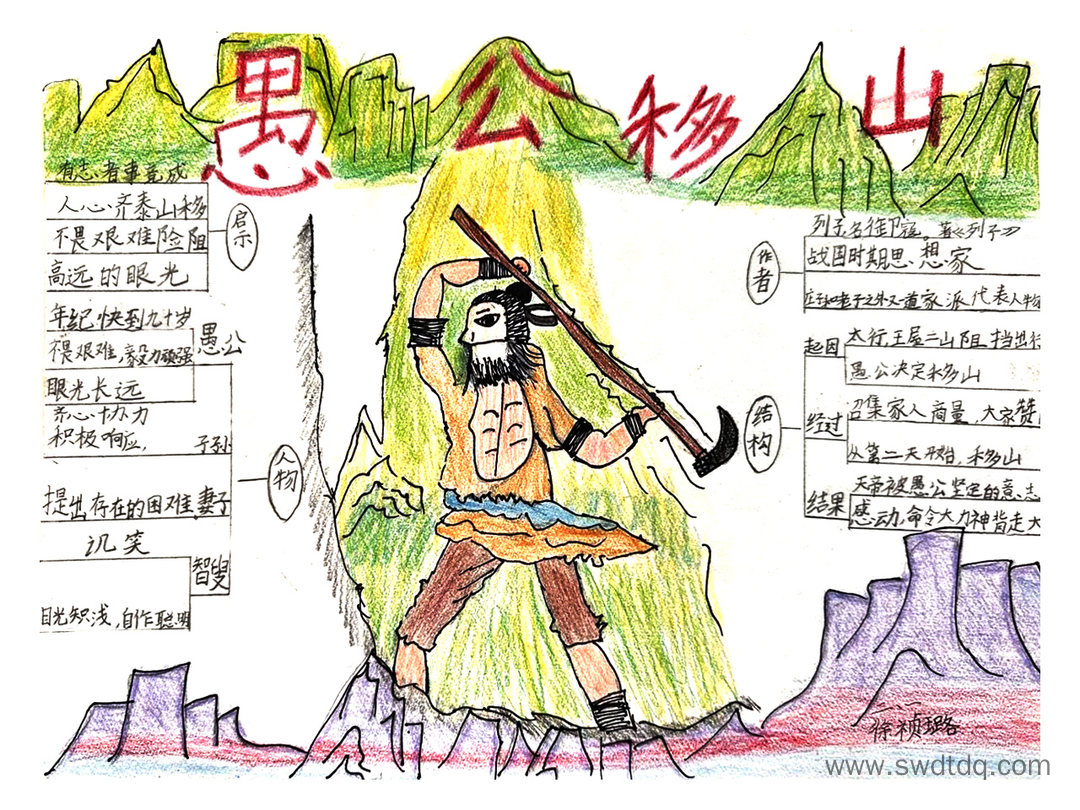 愚公移山
有志者事竟成
人心齐泰山移
不畏艰难险阻
高远的眼光
启示
年纪快到九十岁
不畏艰难，毅力顽强
眼光长远
愚公
齐心协力
积极响应，
子孙
提出存在的困难
妻子
讥笑
目光短浅，自作聪明
智叟
人物
作者
列子名御寇，著《列子》
战国时期思想家
庄子和老子之外又道家派代表人物
结构
起因
太行、王屋二山阻挡出行
愚公决定移山
经过
召集家人商量，大家赞
从第二天开始，移山
结果
天帝被愚公坚定的意志
感动，命令大力神背走大
二、二
徐祯璐
www.swdtdq.com